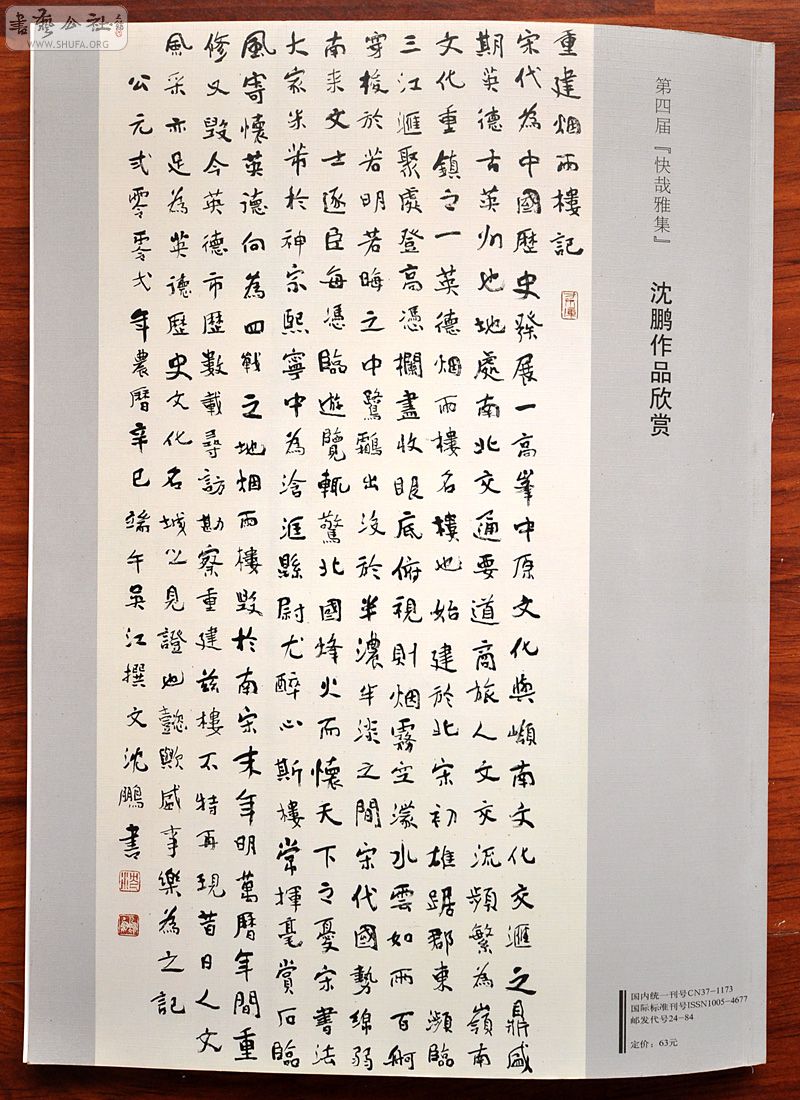 書藝公社
WWW.SHUFA.ORG
第四届『快哉雅集』
沈鹏作品欣赏
重建烟雨樓記
宋代為中國歷史發展一高峯中原文化與嶺南文化交滙之鼎盛
期英德古英州也地處南北交通要道商旅人文交流頻繁為嶺南
文化重鎮之一英德烟雨樓名樓也始建於北宋初雄踞郡東瀕臨
三江滙聚處登高憑欄盡收眼底俯視則烟霧空濛水雲如雨百舸
穿梭於若明若晦之中鷺鸛出没於半濃半淡之間宋代國勢綿弱
南来文士逐臣每憑臨遊覽輒驚北國烽火而懷天下之憂宋書法
大家米芾於神宗熙寧中為浛洭縣尉尤醉心斯樓常揮毫賞石臨
風寄懷英德向為四戰之地烟雨樓毀於南宋末年明萬曆年間重
修又毀今英德市歷數載尋訪勘察重建兹樓不特再現昔日人文
風采亦足為英德歷史文化名城之見證也懿歟盛事樂為之記
公元弍零零弍年農曆辛巳端午吴江撰文沈鵬書
国内统一刊号CN37-1173
国际标准刊号ISSN1005-4677
邮发代号24-84
定价：63元